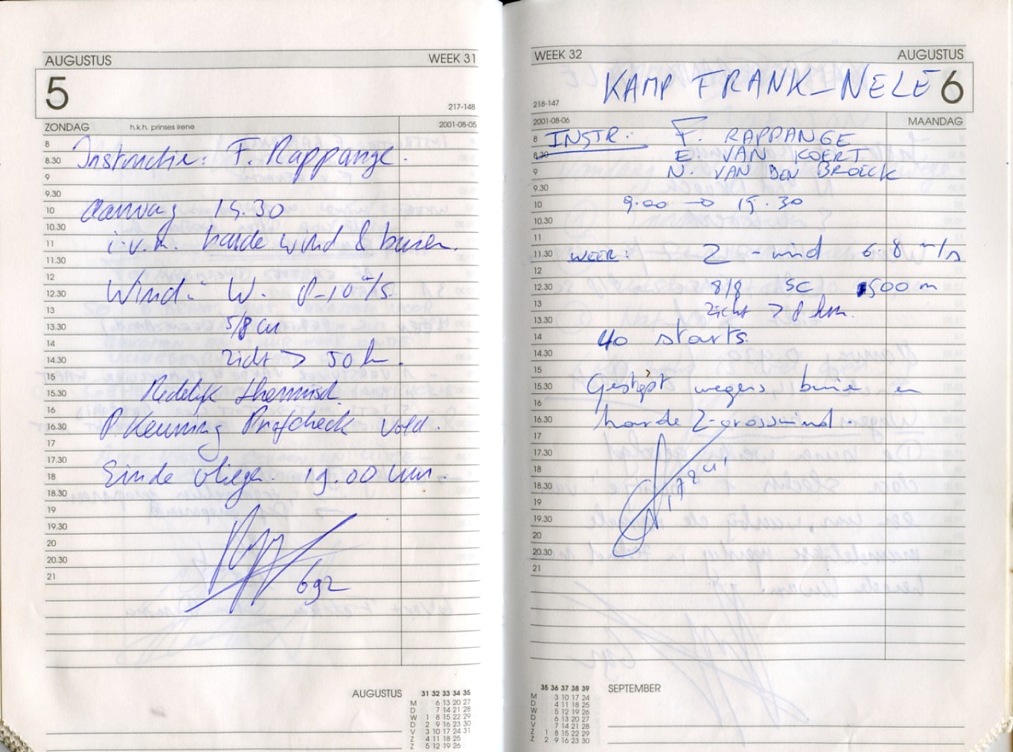 AUGUSTUS WEEK 31
5
217-148
ZONDAG h.k.h. prinses irene 2001-08-05
8
8.30 Instructie: F. Rappange.
9
9.30
10 Aanvang 15.30
10.30
11 i.v.m. harde wind & buien.
11.30
12
12.30 Wind: W. 8-10 m/s
13
13.30 5/8 cu
14
14.30 zicht > 50 km.
15
15.30 Redelijk thermisch.
16
16.30 P Keuning Profcheck vold.
17
17.30
18 Einde vliegen. 19.00 uur.
18.30
19
19.30
20
20.30
21
692
AUGUSTUS 31 32 33 34 35
M 6 13 20 27
D 7 14 21 28
W 1 8 15 22 29
D 2 9 16 23 30
V 3 10 17 24 31
Z 4 11 18 25
Z 5 12 19 26
WEEK 32 AUGUSTUS
KAMP FRANK-NELE 6
218-147
2001-08-06 MAANDAG
8 INSTR: F. RAPPANGE
8.30 E. VAN KOERT
9 N. VAN DEN BROECK
9.30
10 9.00 → 15.30
10.30
11
11.30 WEER: Z-wind 6-8 m/s
12
12.30 8/8 SC 1500 m
13 zicht > 8 km.
13.30
14 40 starts
14.30
15
15.30 Gestopt wegens buie en
16
16.30 harde Z-crosswind.
17
17.30
18
18.30
19
19.30
20
20.30
21
35 36 37 38 39 SEPTEMBER
M 3 10 17 24
D 4 11 18 25
W 5 12 19 26
D 6 13 20 27
V 7 14 21 28
Z 1 8 15 22 29
Z 2 9 16 23 30